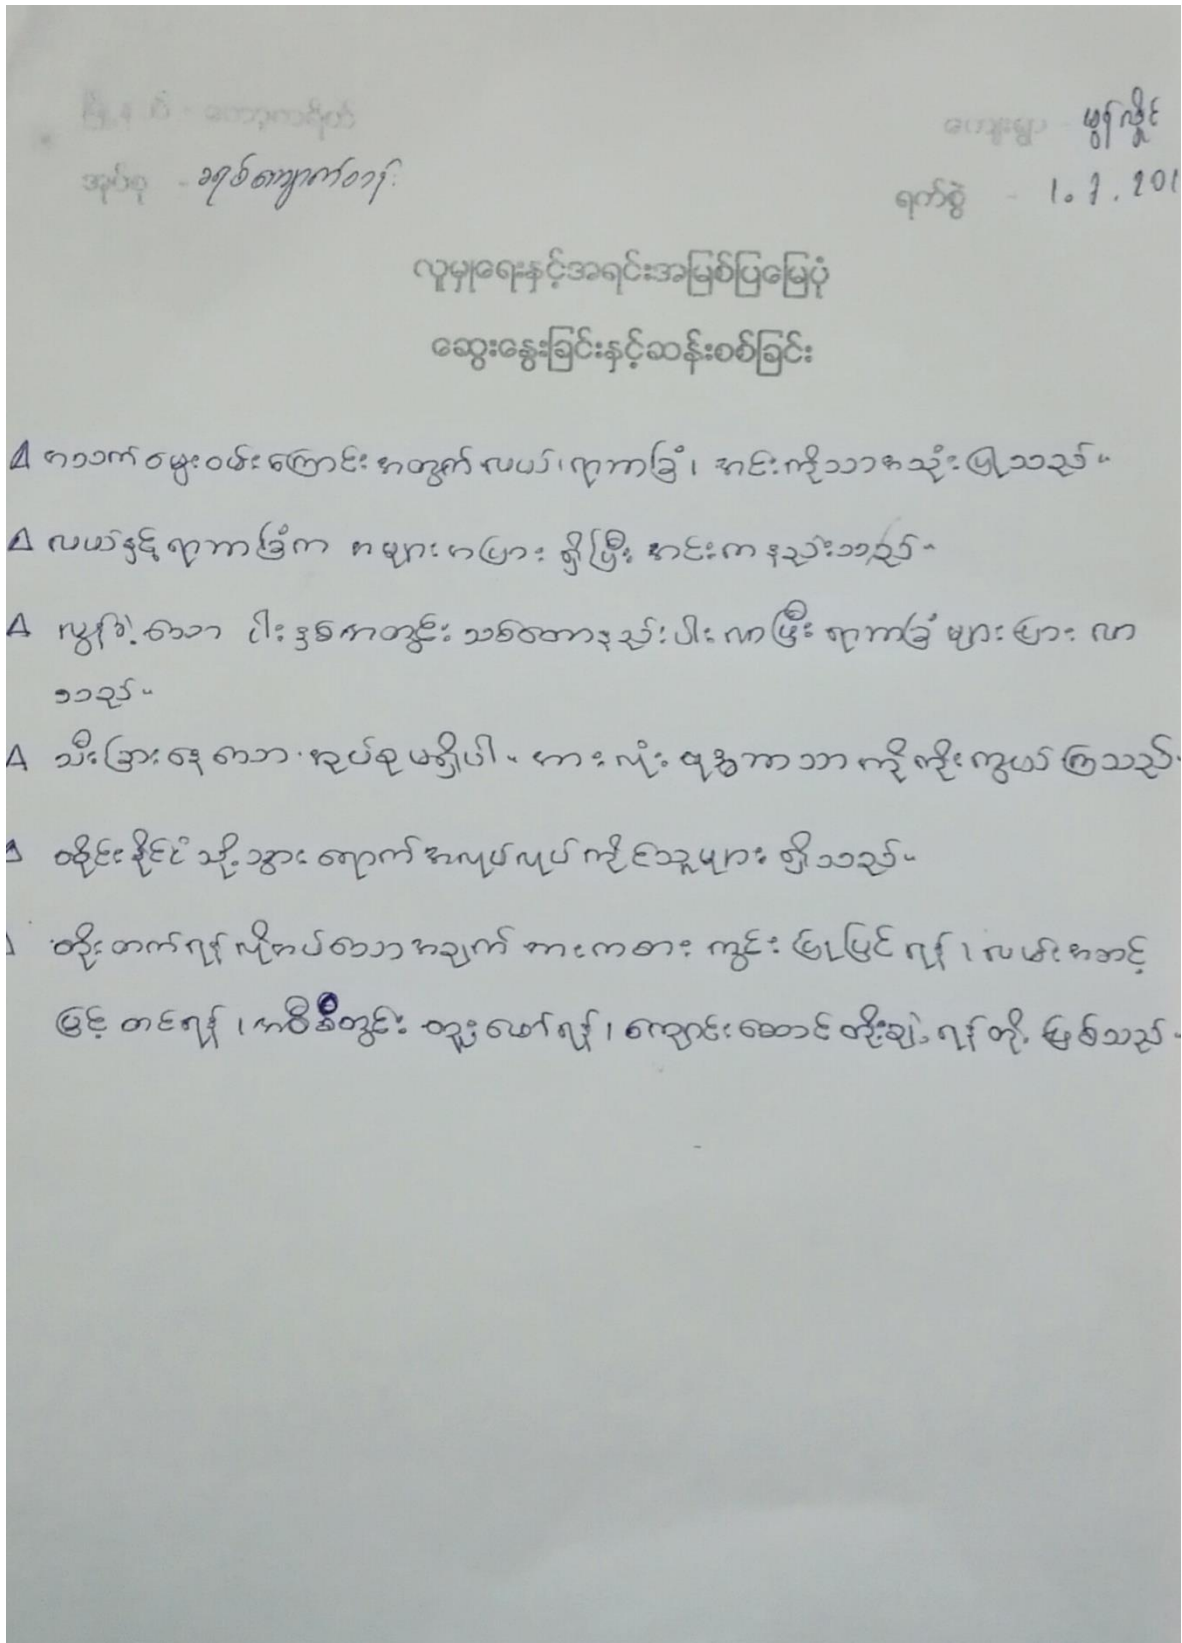 မြို့နယ် - ကော့ကရိတ်
ကျေးရွာ - မွန်လှိုင်
အုပ်စု - ခရစ်ကျောက်တန်း
ရက်စွဲ - 1.7.201
လူမှုရေးနှင့်အရင်းအမြစ်ပြမြေပုံ
ဆွေးနွေးခြင်းနှင့်ဆန်းစစ်ခြင်း
အသက်မွေးဝမ်းကြောင်းအတွက်လယ်၊ ရာဘာခြံ၊ အင်းကိုသာအသုံးပြုသည်။
လယ်နှင့်ရာဘာခြံက အများအပြားရှိပြီး အင်းကနည်းသည်။
လွန်ခဲ့သော ငါးနှစ်အတွင်း သစ်တောနည်းပါးလာပြီး ရာဘာခြံများပြားလာ
သည်။
သီးခြားနေသော အုပ်စုမရှိပါ။ အားလုံးဗုဒ္ဓဘာသာကိုကိုးကွယ်ကြသည်။
ထိုင်းနိုင်ငံသို့သွားရောက်အလုပ်လုပ်ကိုင်သူများရှိသည်။
တိုးတက်ရန်လိုအပ်သောအချက် အားကစားကွင်းပြုပြင်ရန်၊ လမ်းအဆင့်
မြှင့်တင်ရန်၊ အဝီစိတွင်းတူးဖော်ရန်၊ ကျောင်းဆောင်တိုးချဲ့ရန်တို့ဖြစ်သည်။